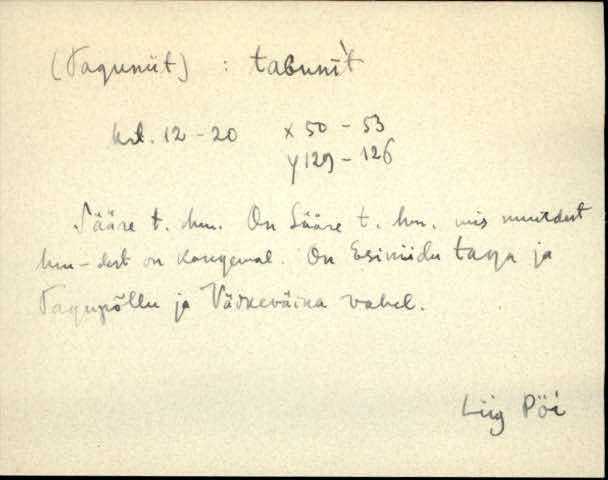 (Taguniit) : taɢunìt
krt. 12-20 x 50 - 53
y 129 - 126
Sääre t. hm. On Sääre t. hm. mis muudest
hm-dest on kaugemal. On Esiniidu taga ja
Tagupõllu ja Väikeväina vahel.
Liig Pöi